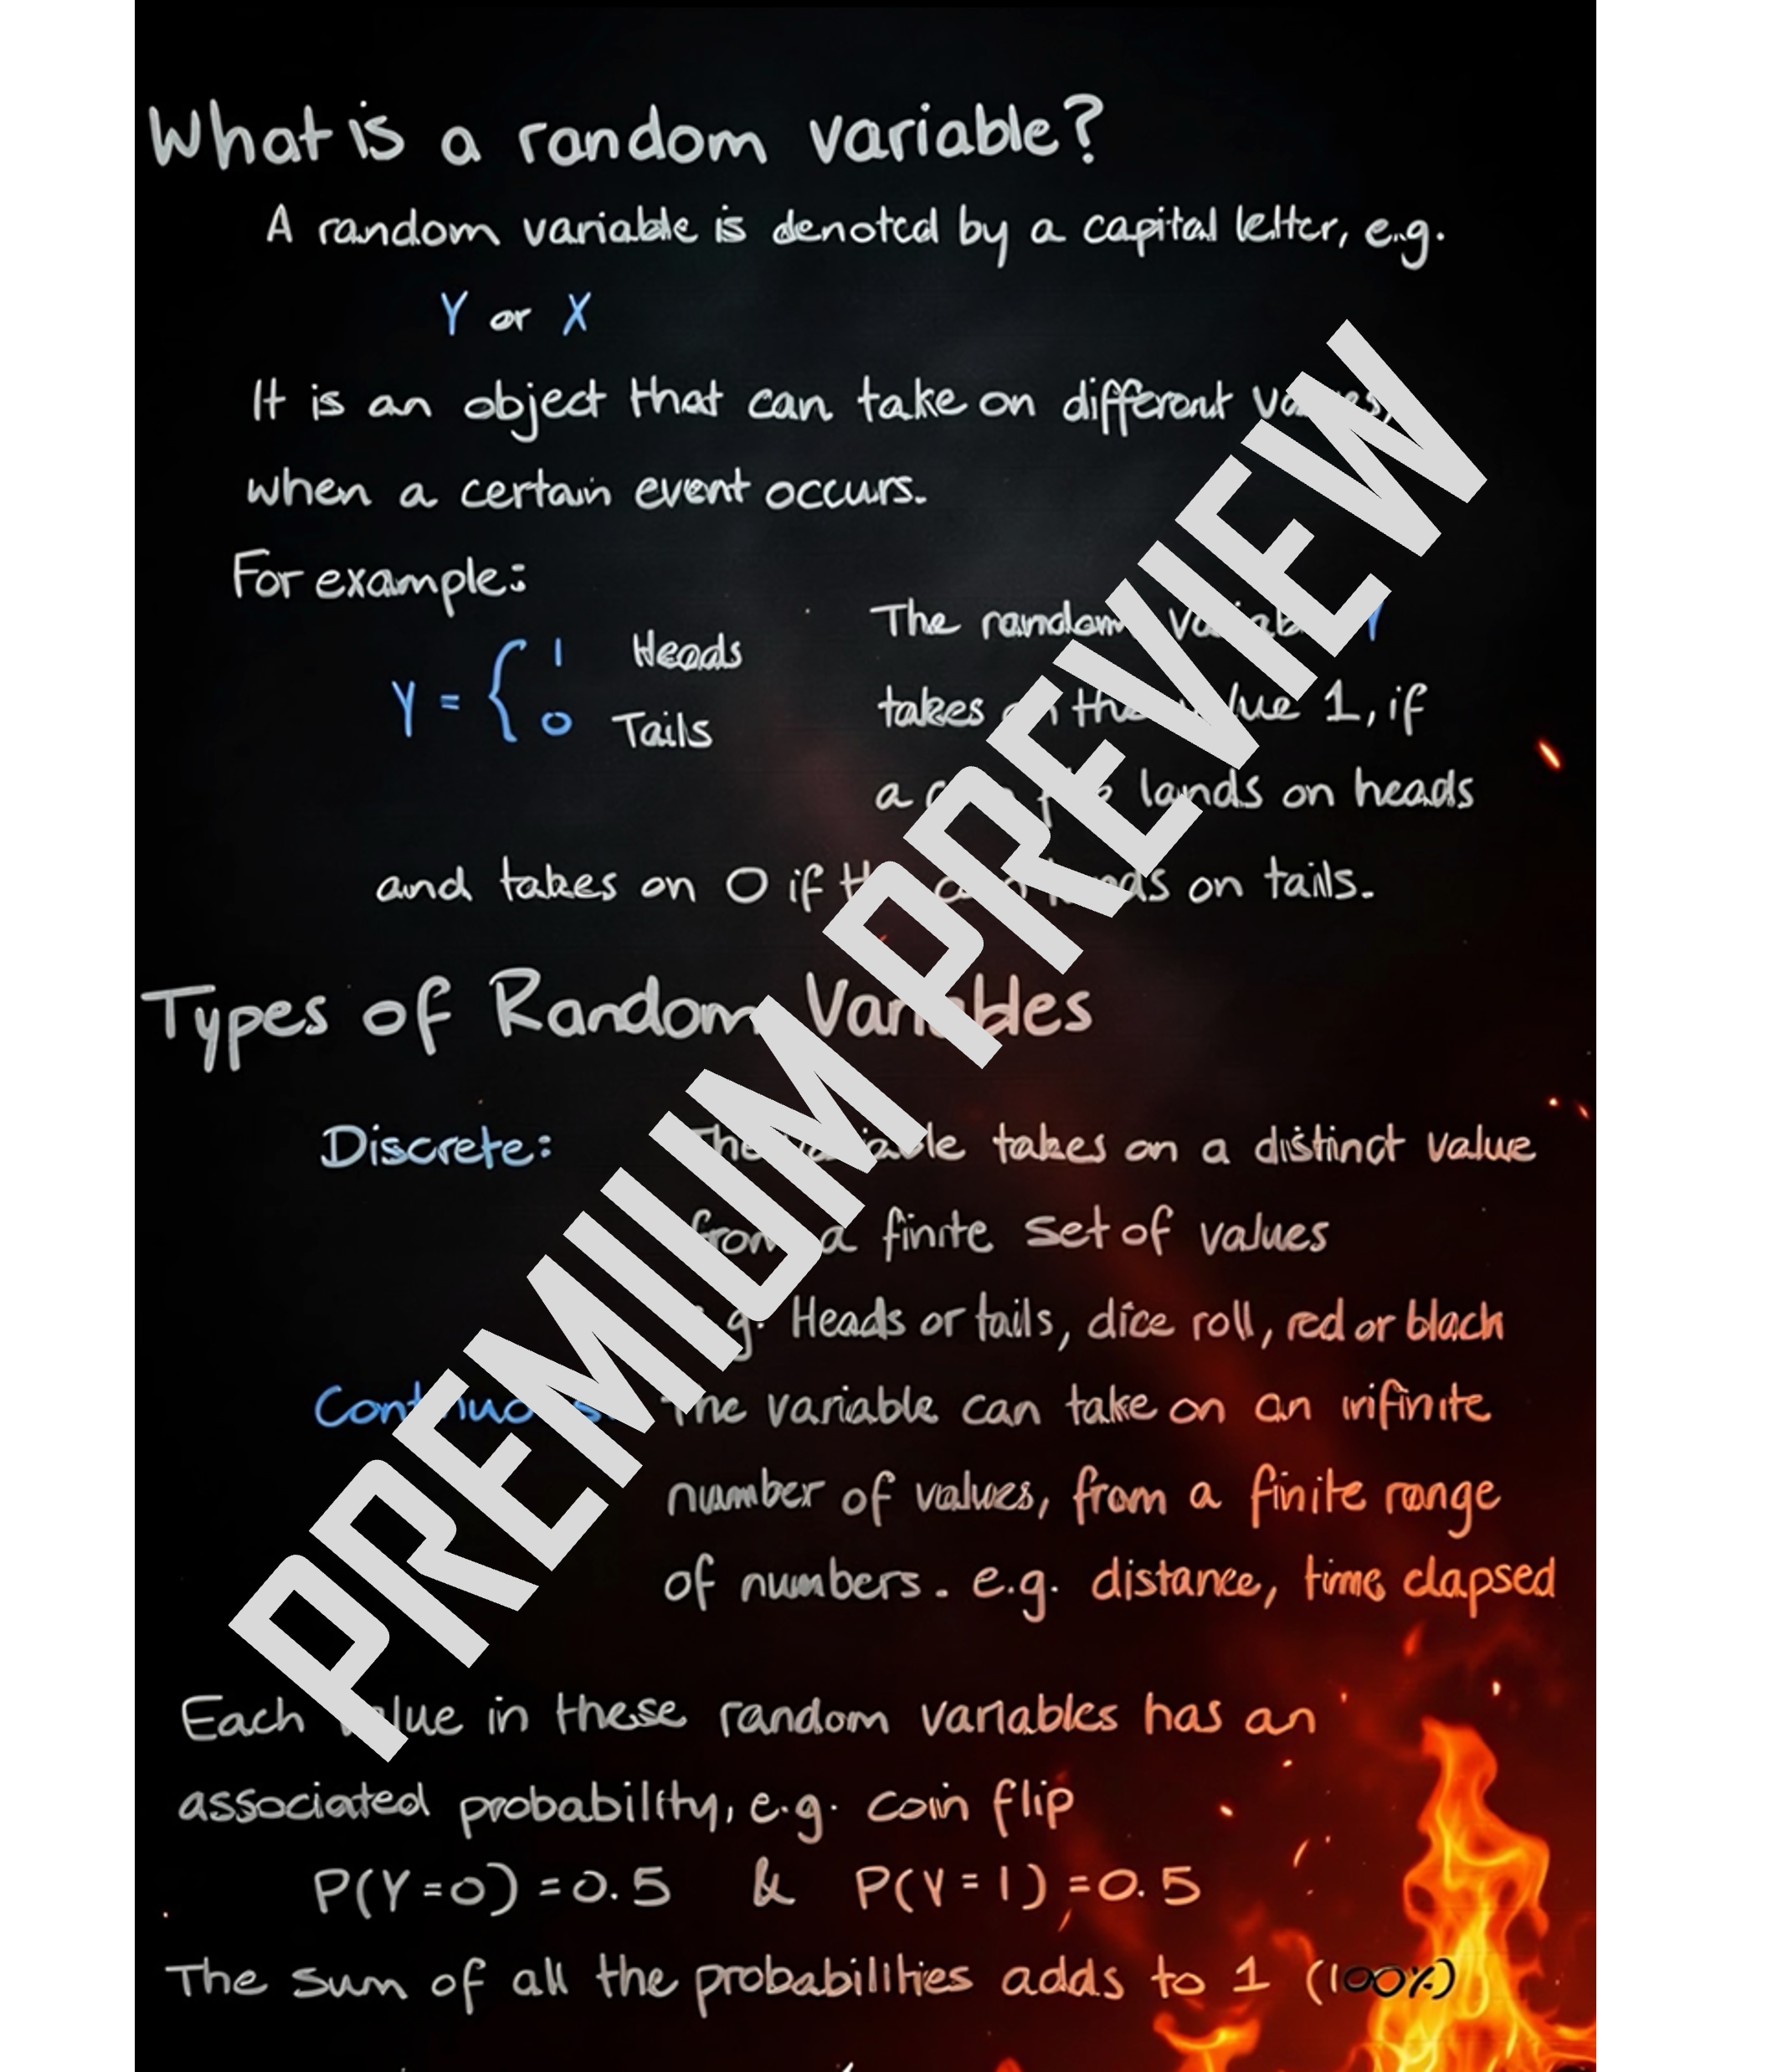 What is a random variable?
A random variable is denoted by a capital letter, e.g.
Y or X
It is an object that can take on different values,
when a certain event occurs.
For example:
Y = { 1 Heads
0 Tails
The random variable Y
takes on the value 1, if
a coin flip lands on heads
and takes on 0 if the coin lands on tails.
Types of Random Variables
Discrete: The variable takes on a distinct value
from a finite set of values
e.g. Heads or tails, dice roll, red or black
Continuous: The variable can take on an infinite
number of values, from a finite range
of numbers. e.g. distance, time elapsed
Each value in these random variables has an
associated probability, e.g. coin flip
P(Y=0)=0.5 & P(Y=1)=0.5
The sum of all the probabilities adds to 1 (100%)
PREMIUM PREVIEW